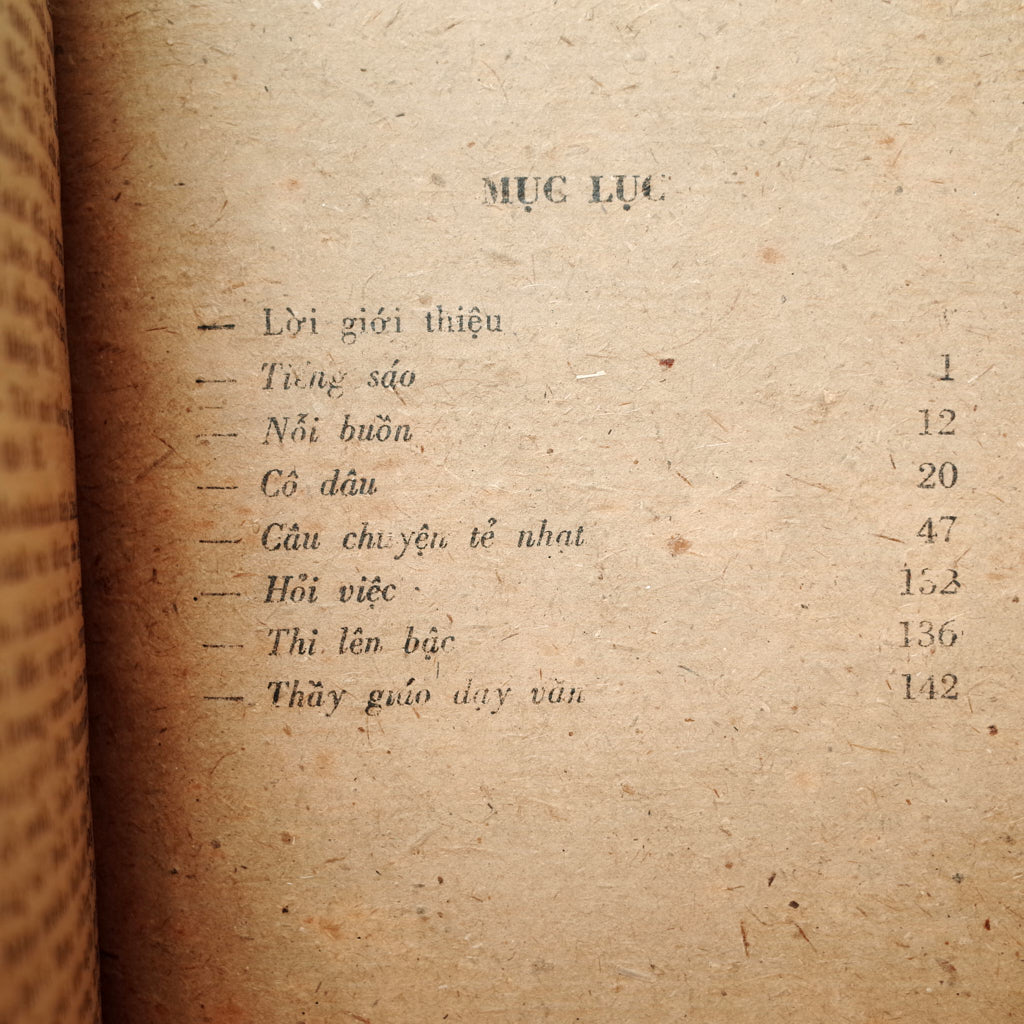 MỤC LỤC
— Lời giới thiệu
— Tiếng sáo 1
— Nỗi buồn 12
— Cô dâu 20
— Câu chuyện tẻ nhạt 47
— Hỏi việc 132
— Thi lên bậc 136
— Thầy giáo dạy văn 142